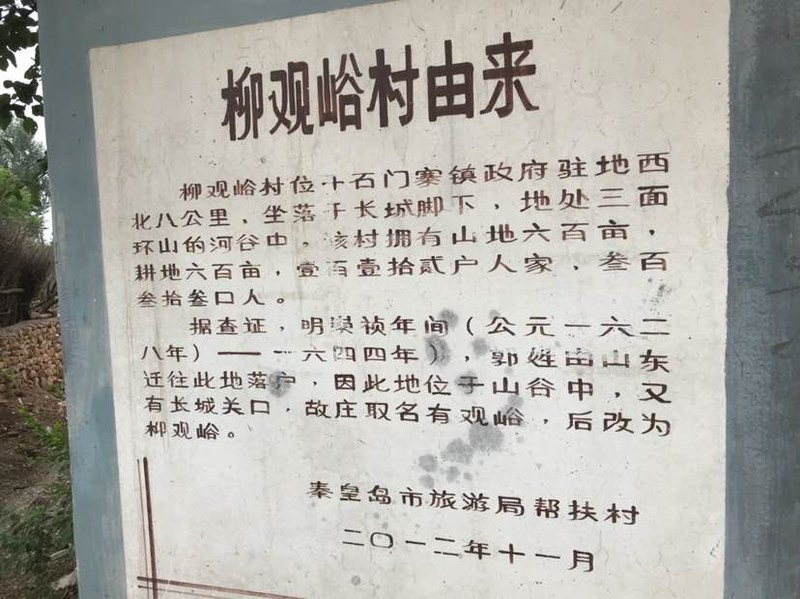 柳观峪村由来
柳观峪村位于石门寨镇政府驻地西
北八公里，坐落于长城脚下，地处三面
环山的河谷中，该村拥有山地六百亩，
耕地六百亩，壹百壹拾贰户人家，叁百
叁拾叁口人。
据查证，明崇祯年间（公元一六二
八年）——一六四四年），郭姓由山东
迁往此地落户，因此地位于山谷中，又
有长城关口，故庄取名有观峪，后改为
柳观峪。
秦皇岛市旅游局帮扶村
二〇一二年十一月